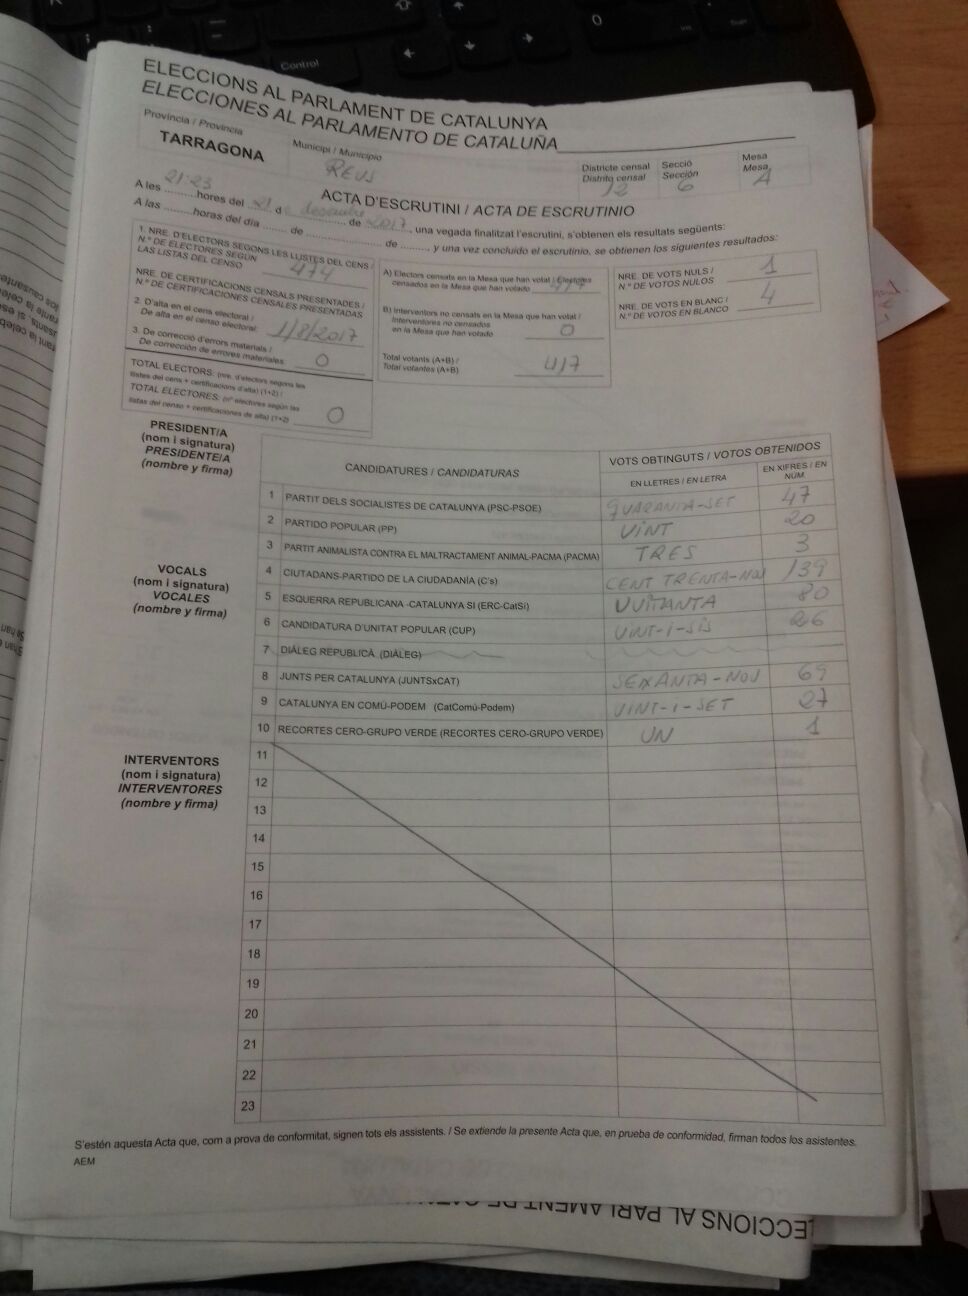 Control
ELECCIONS AL PARLAMENT DE CATALUNYA
ELECCIONES AL PARLAMENTO DE CATALUÑA
Província / Provincia
TARRAGONA
Municipi / Municipio
REUS
Districte censal
Distrito censal
12
Secció
Sección
6
Mesa
Mesa
A
ACTA D'ESCRUTINI / ACTA DE ESCRUTINIO
A les 21:23 hores del 21 d e desembre de 2017, una vegada finalitzat l'escrutini, s'obtenen els resultats següents:
A las ......... horas del día ....... de ......................... de ......... y una vez concluido el escrutinio, se obtienen los siguientes resultados:
1. NRE. D'ELECTORS SEGONS LES LLISTES DEL CENS /
N.º DE ELECTORES SEGÚN
LAS LISTAS DEL CENSO
474
NRE. DE CERTIFICACIONS CENSALS PRESENTADES /
N.º DE CERTIFICACIONES CENSALES PRESENTADAS
2. D'alta en el cens electoral /
De alta en el censo electoral:
1/8/2017
3. De correcció d'errors materials /
De corrección de errores materiales:
0
TOTAL ELECTORS: (nre. d'electors segons les
llistes del cens + certificacions d'alta) (1+2) /
TOTAL ELECTORES: (nº electores según las
listas del censo + certificaciones de alta) (1+2)
0
A) Electors censats en la Mesa que han votat / Electores
censados en la Mesa que han votado
417
B) Interventors no censats en la Mesa que han votat /
Interventores no censados
en la Mesa que han votado
0
Total votants (A+B) /
Total votantes (A+B)
417
NRE. DE VOTS NULS /
N.º DE VOTOS NULOS
1
NRE. DE VOTS EN BLANC /
N.º DE VOTOS EN BLANCO
4
PRESIDENT/A
(nom i signatura)
PRESIDENTE/A
(nombre y firma)
CANDIDATURES / CANDIDATURAS
VOTS OBTINGUTS / VOTOS OBTENIDOS
EN LLETRES / EN LETRA
EN XIFRES / EN NÚM.
1 PARTIT DELS SOCIALISTES DE CATALUNYA (PSC-PSOE) QUARANTA-SET 47
2 PARTIDO POPULAR (PP) VINT 20
3 PARTIT ANIMALISTA CONTRA EL MALTRACTAMENT ANIMAL-PACMA (PACMA) TRES 3
4 CIUTADANS-PARTIDO DE LA CIUDADANÍA (C's) CENT TRENTA-NOU 139
5 ESQUERRA REPUBLICANA -CATALUNYA SÍ (ERC-CatSí) VUITANTA 80
6 CANDIDATURA D'UNITAT POPULAR (CUP) VINT-I-SIS 26
7 DIÀLEG REPUBLICÀ (DIÀLEG)
8 JUNTS PER CATALUNYA (JUNTSxCAT) SEIXANTA-NOU 69
9 CATALUNYA EN COMÚ-PODEM (CatComú-Podem) VINT-I-SET 27
10 RECORTES CERO-GRUPO VERDE (RECORTES CERO-GRUPO VERDE) UN 1
VOCALS
(nom i signatura)
VOCALES
(nombre y firma)
INTERVENTORS
(nom i signatura)
INTERVENTORES
(nombre y firma)
11
12
13
14
15
16
17
18
19
20
21
22
23
S'estén aquesta Acta que, com a prova de conformitat, signen tots els assistents. / Se extiende la presente Acta que, en prueba de conformidad, firman todos los asistentes.
AEM
ELECCIONS AL PARLAMENT DE